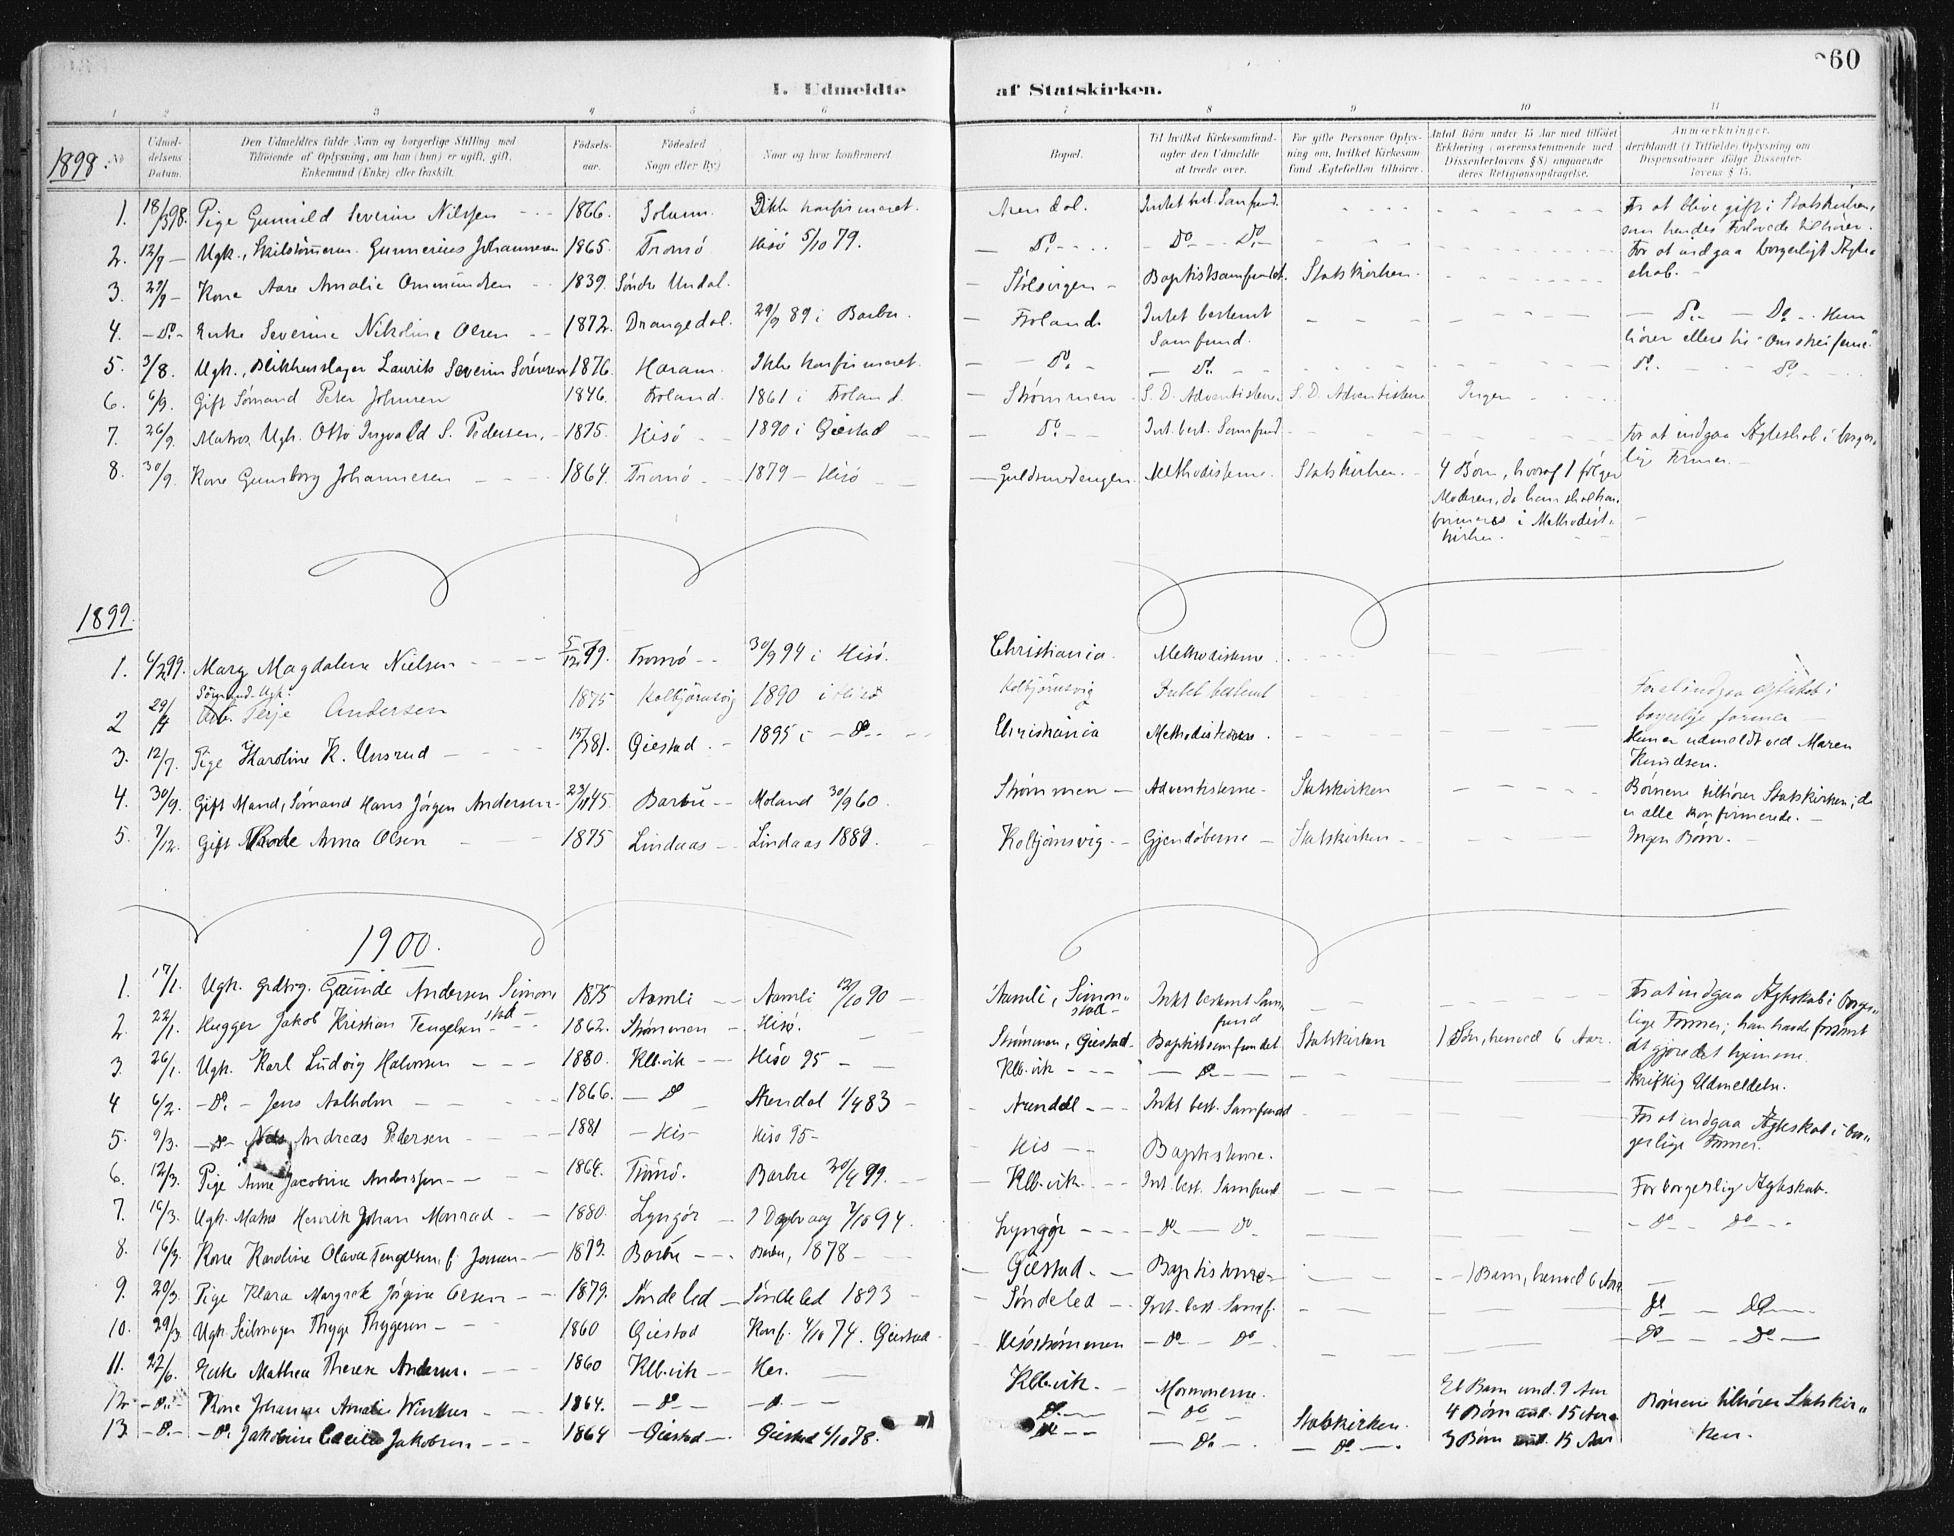 260
I. Udmeldte af Statskirken.
1 2 3 4 5 6 7 8 9 10 11
No
Udmeldelsens Datum.
Den Udmeldtes fulde Navn og borgerlige Stilling med Tilføiende af Oplysning, om han (hun) er ugift, gift, Enkemand (Enke) eller fraskilt.
Fødselsaar.
Fødested Sogn eller By.)
Naar og hvor konfirmeret
Bopæl.
Til hvilket Kirkesamfundagter den Udmeldte at træde over.
For gifte Personer Oplysning om, hvilket Kirkesamfund Ægtefællen tilhører.
Antal Børn under 15 Aar med tilføiet Erklæring (overensstemmende med Dissenterlovens § 8) angaaende deres Religionsopdragelse.
Anmærkninger, deriblandt (i Tilfælde) Oplysning om Dispensationer ifølge Dissenterlovens § 15.
1898.
1. 18/3 98. Pige Gunnild Severine Nilssen 1866. Ikke konfirmeret. Arendal. Intet best. Samfund. For at blive gift i Statskirken, som hendes Forlovede tilhører.
2. 12/9 Ugk., Gunnerius Johannesen 1865. Tromø Hisø 5/10 79. Do Do Do For at indgaa borgerligt Ægteskab.
3. 29/9 Kone Aase Amalie Ommundsen 1839. Søndre Undal. Stølsvigen Baptistsamfundet Statskirken.
4. Do Enke Severine Nikoline Olsen 1872. Drangedal. 29/9 89 i Barbu. Froland Intet bestemt Samfund. Do Do
5. 3/8. Ugk., Blikkenslager Laurits Severin Sørensen 1876. Ikke konfirmeret. Do Do. Do. Do
6. 6/9. Gift Sømand Peter Johnsen 1846. Froland. 1861 i Froland. Strømmen S. D. Adventisterne S. D. Adventisterne Ingen
7. 26/9. Matros Ugk. Otto Ingvald S. Pedersen. 1875. Hisø 1890 i Giestad Do Int. best. Samfund For at indgaa Ægteskab i borgerlige Former.
8. 30/9. Kone Gunborg Johannesen 1864. Tromø 1879 Hisø Guldsmedengen. Methodisterne. Statskirken. 4 Børn, hvoraf 1 følger Moderen, da han skal konfirmeres i Methodistkirken.
1899.
1. 4/2 99. Mary Magdalene Nielsen 5/12 79. Tromø 30/9 94 i Hisø. Christiania. Methodisterne.
2 29/4 Sømand Ugk. Terje Andersen 1875 Kolbjørnsvig 1890 i Hisø Kolbjørnsvig Intet bestemt For at indgaa Ægteskab i borgerlige former
3. 12/7. Pige Karoline K. Unsrud 81. Giestad. 1895 i Do. Christiania Methodistkirken. Hun er udmeldt ved Maren Knudsen.
4. 30/9. Gift Mand, Sømand Hans Jørgen Andersen 23/11 45 Barbu Moland 30/9 60. Strømmen Adventisterne Statskirken Børnene tilhører Statskirken; de er alle konfirmerede.
5. 7/12. Gift Anna Olsen 1875 Lindaas Lindaas 1889. Kolbjørnsvig Gjendøberne Statskirken Ingen Børn.
1900.
1. 17/1. Ugk. Grdbrg. Gunde Andersen Simonstad 1875 Aamli Aamli 12/10 90 Aamli, Simonstad Intet bestemt Samfund For at indgaa Ægteskab i borgerlige Former; han havde forsømt at gjøre det hjemme.
2. 22/1. Hugger Jakob Kristian Tengelsen 1862. Strømmen Hisø. Strømmen, Giestad Baptistsamfundet Statskirken 1 Søn, henved 6 Aar.
3. 26/1. Ugk. Karl Ludvig Halvorsen 1880. Klb.vik Hisø 95 Klb.vik Do Skriftlig Udmeldelse.
4 6/2. Do. Jens Aalholm 1866. Do Arendal 1/4 83 Arendal Intet best. Samfund For at indgaa Ægteskab i borgerlige Former.
5. 9/3. Do Nils Andreas Pedersen 1881 His Hisø 95 His Baptisterne.
6. 12/3. Pige Anne Jacobine Anderssen 1864. Tromø. Barbu Klb.vik Int. best. Samfund For borgerlig Ægteskab.
7. 16/3. Ugk. Matros Henrik Johan Monrad 1880. Lyngør 94. Lyngør Do Do Do Do
8. 16/3. Kone Karoline Olava Tengelsen, f. Jensen 1873. Barbu Barbu, 1878 Giestad Baptisterne 1 Barn, henved 6 Aar
9. 20/3. Pige Klara Margrete Jørgine Olsen 1879. Søndeled Søndeled 1893 Søndeled Int. best. Samf. Do Do
10. 29/3. Ugk. Seilmager Thygge Thygesen 1860 Giestad Konf. 4/10 74. Giestad Hisøstrømmen Do Do Do Do
11. 22/6. Enke Mathea Therese Andersen. 1860 Klb.vik Her. Klb.vik. Mormonerne. Et Barn und. 9 Aar
12. Do. Kone Johanne Amalie Winther 1864. Do Do Do Do Statskirken. 4 Børn und. 15 Aar Børnene tilhører Statskirken.
13. Do. Do. Jakobine Cecilie Jakobsen 1864 Giestad Giestad 6/10 78. Do Do. Do. 3 Børn und. 15 Aar